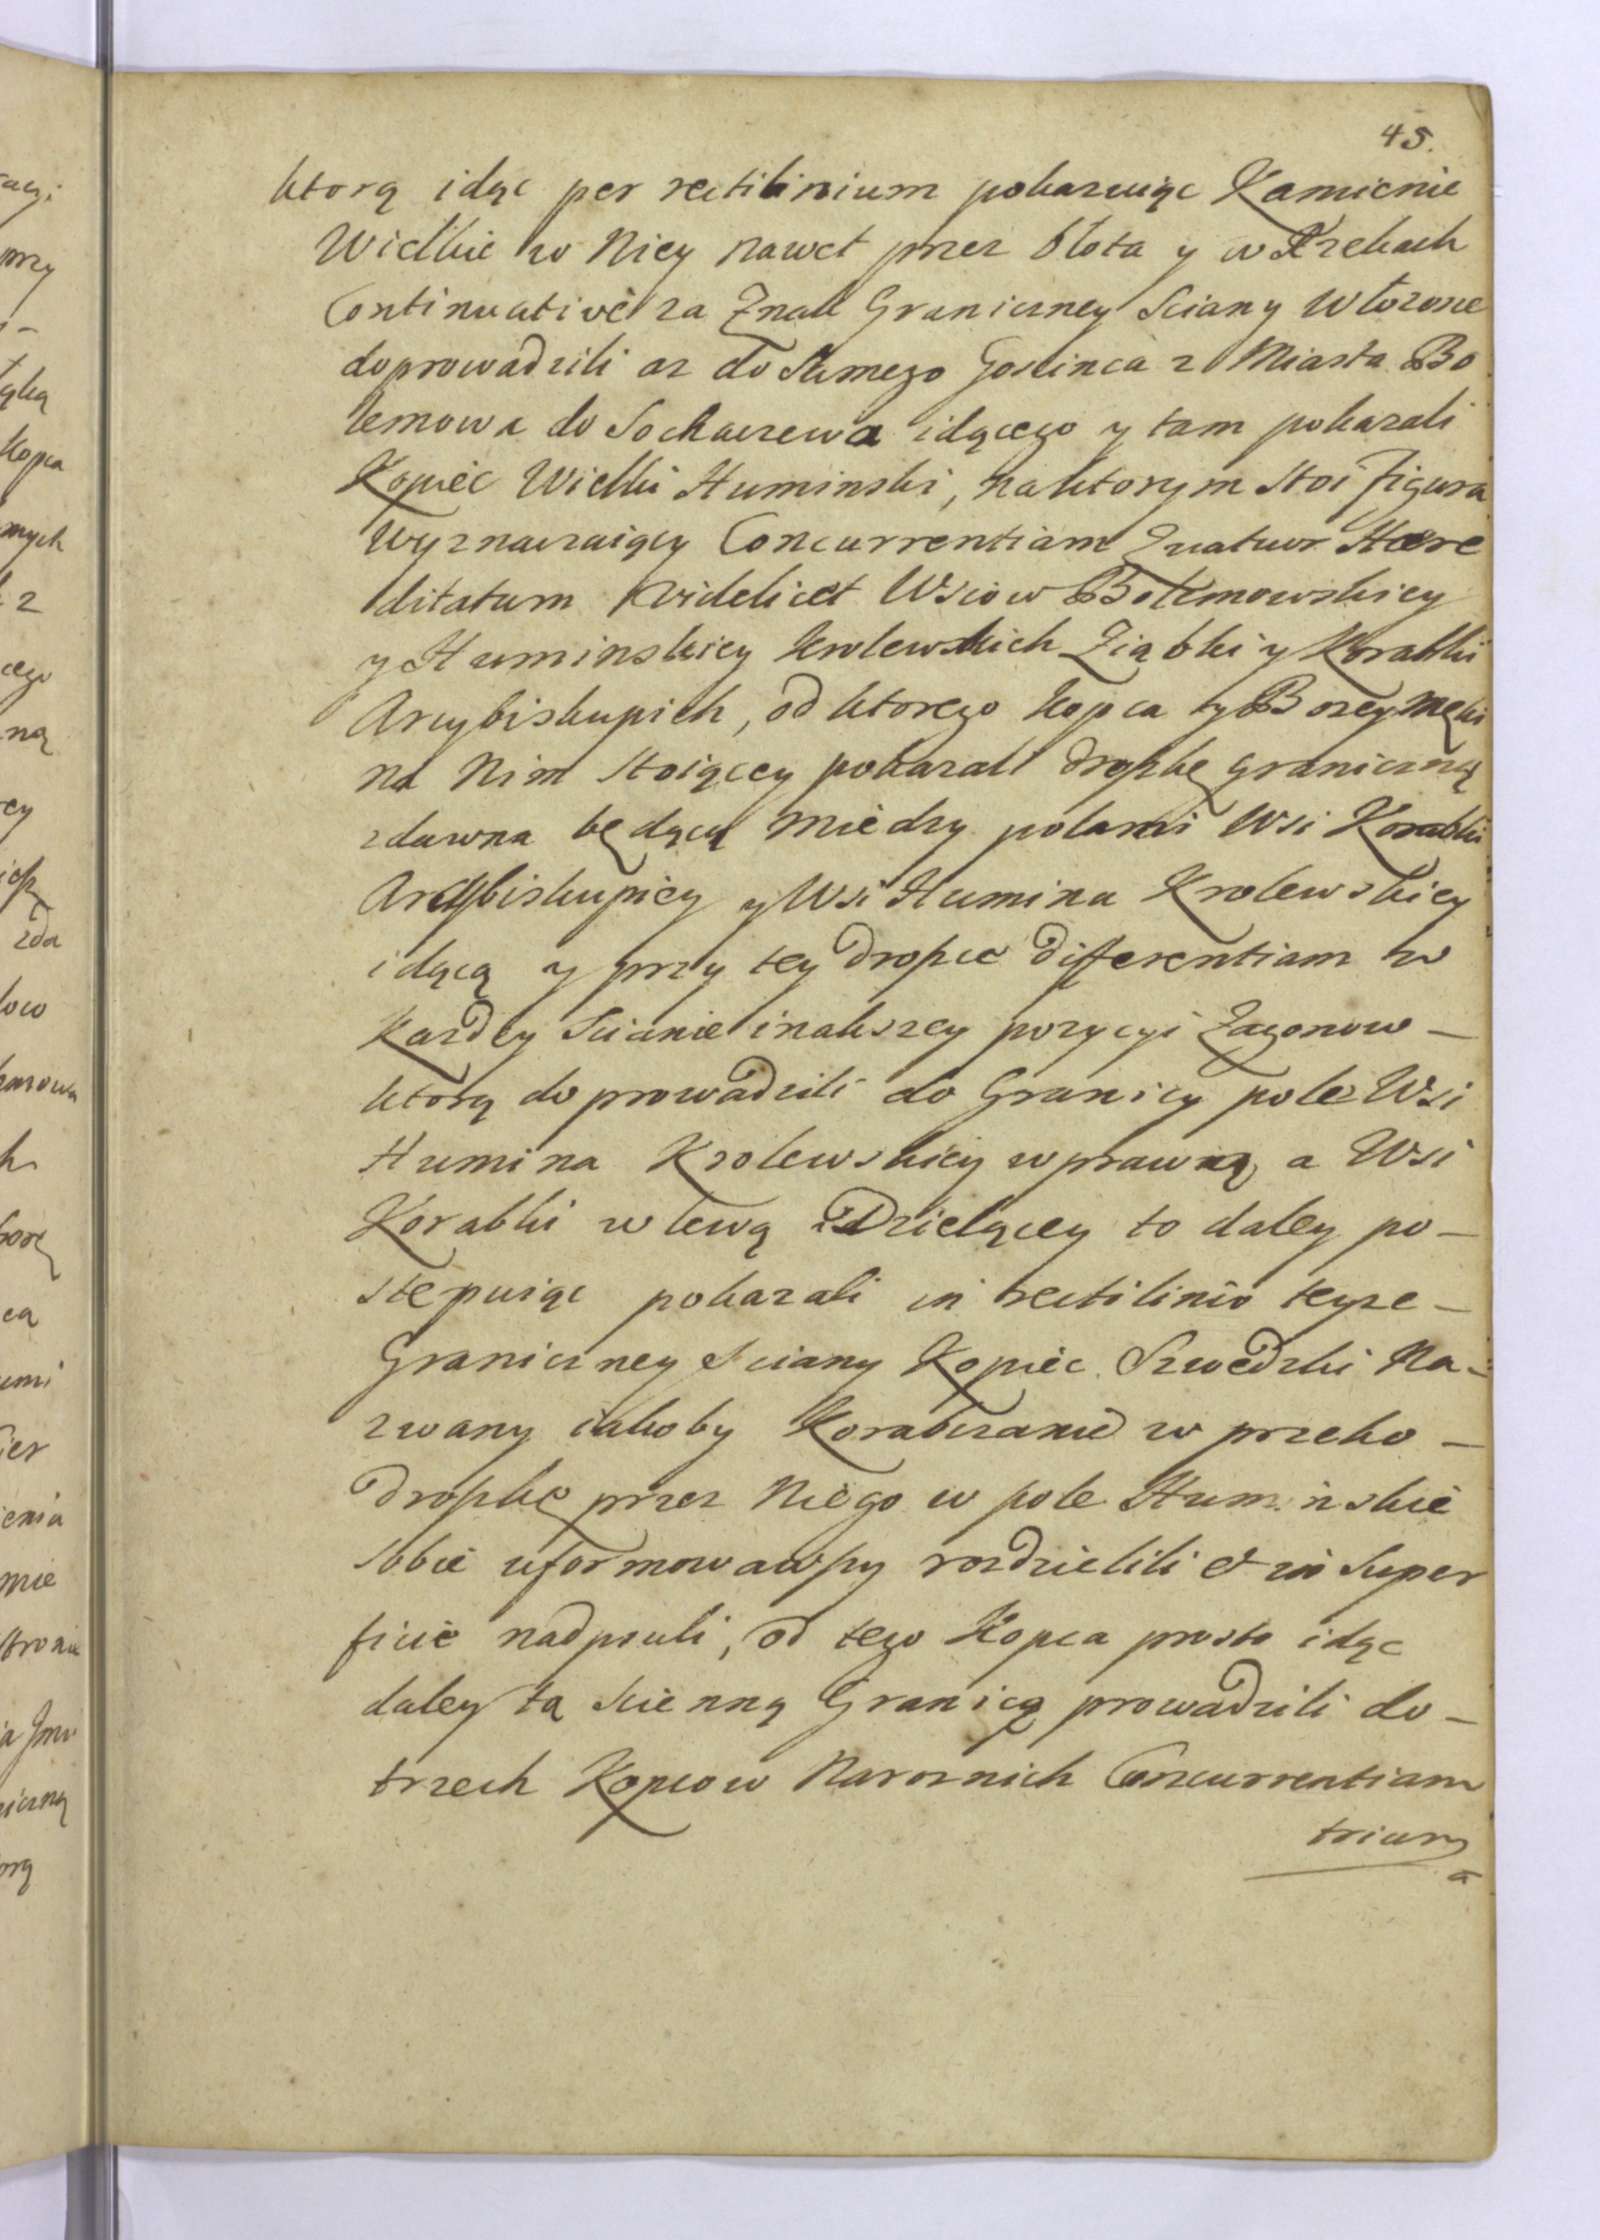 45.
ktorą idąc per rectilinium pokazuiąc Kamienie
Wielkie w Niey nawet przez błota y w Rzekach
Continuative za Znak Graniczney Sciany Włozone
doprowadzili az do Samego Goscinca z Miasta Bo
lemowa do Sochaczewa idącego y tam pokazali
Kopiec Wielki Huminski, na ktorym Stoi figura
Wyznaczaiący Concurrentiam Quatuor Hære
ditatum videlicet Wsiow Bolemowskiey
y Huminskiey krolewskich Ziąbki y Korabki
Arcybiskupich, od ktorego kopca ty Bozey męki
na Nim Stoiącey pokazali drożkę graniczną
zdawna będącą między polami Wsi Korabki
Arcybiskupiey y Wsi Humina Krolewskiey
idącą y przy tey drożce differentiam w
kazdey Scianie inakszey pozycyi Zagonow —
ktorą doprowadzili do Granicy pole Wsi
Humina Krolewskiey w prawą a Wsi
Korabki w lewą Dzielącey to daley po —
stępuiąc pokazali in rectilinio teyze —
Graniczney Sciany Kopiec Szwedzki Na —
zwany iakoby Korabczanie w przeko —
drożkę przez Niego w pole Huminskie
sobie uformowawszy rozdzielili et in Super
ficie nadpsuli, od tego Kopca prosto idąc
daley tą Scienną Granicą prowadzili do —
trzech Kopcow Naroznich Concurrentiam
trium
ący
przy
kopca
mych
z
cego
ną
ey
zda
low
ca
umi
ier
enia
mie
stronie
iczną
orą